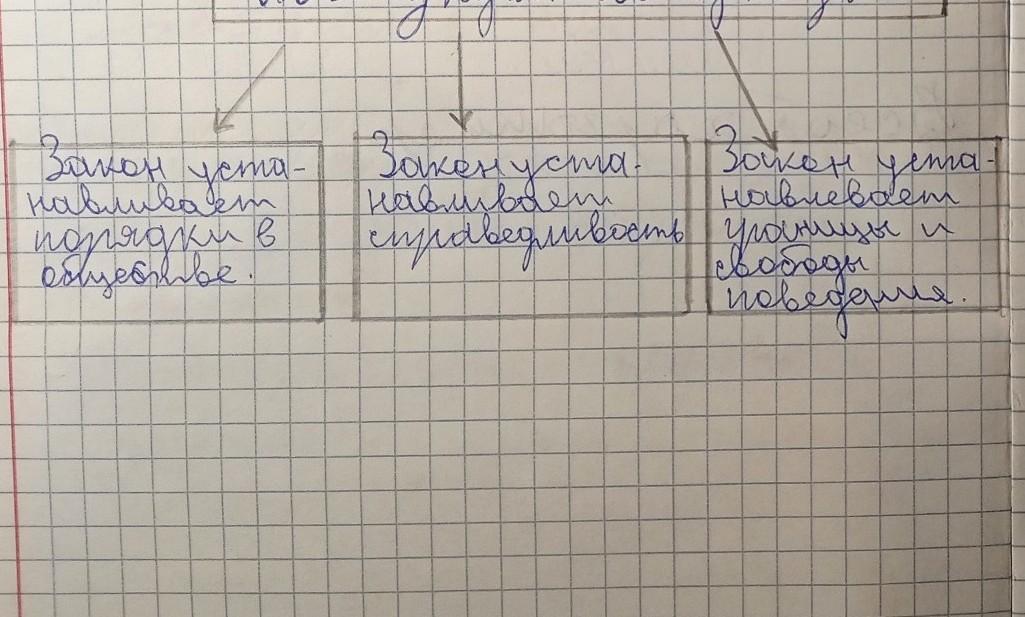 Закон уста-
навливает
порядки в
обществе.
Закон уста-
навливает
справедливость
Закон уста-
навлевает
границы и
свободы
поведения.